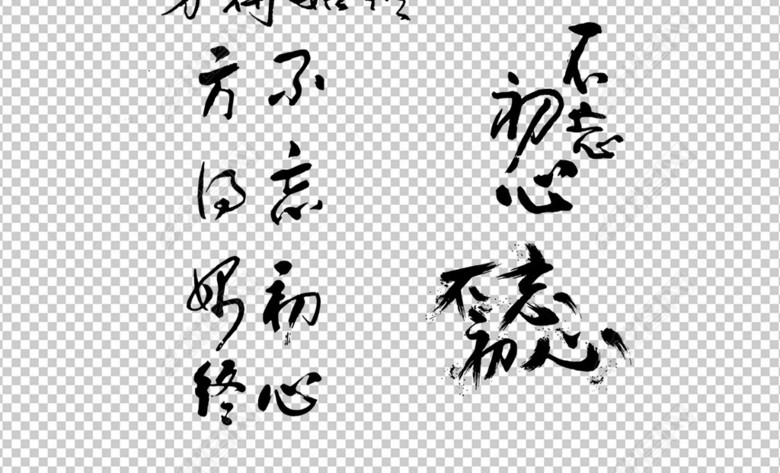 方得始终
不忘初心
方得始终
不忘
初心
不忘
初心